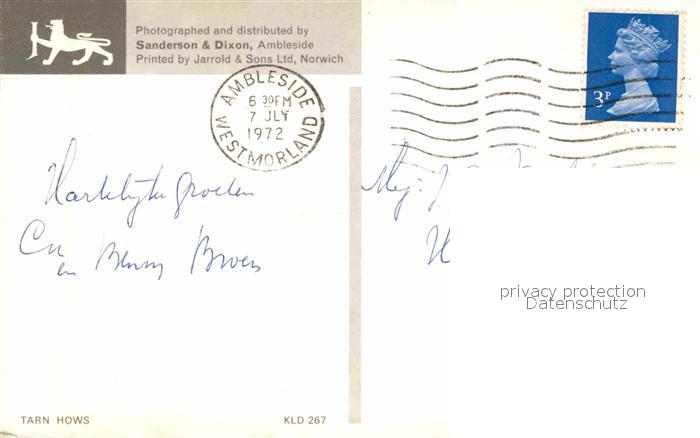 Photographed and distributed by
Sanderson & Dixon, Ambleside
Printed by Jarrold & Sons Ltd, Norwich
AMBLESIDE
6 30PM
7 JLY
1972
WESTMORLAND
3P
Hartelijke groeten
en Benny
Mej: J
privacy protection
Datenschutz
TARN HOWS
KLD 267